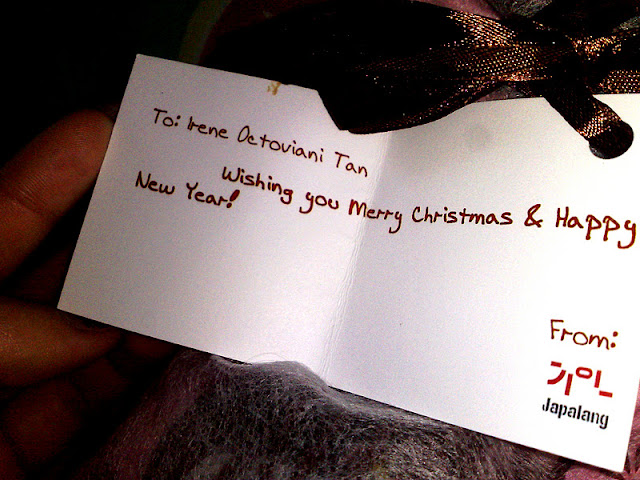 To: Irene Octoviani Tan
Wishing you Merry Christmas & Happy
New Year!
From:
Japalang